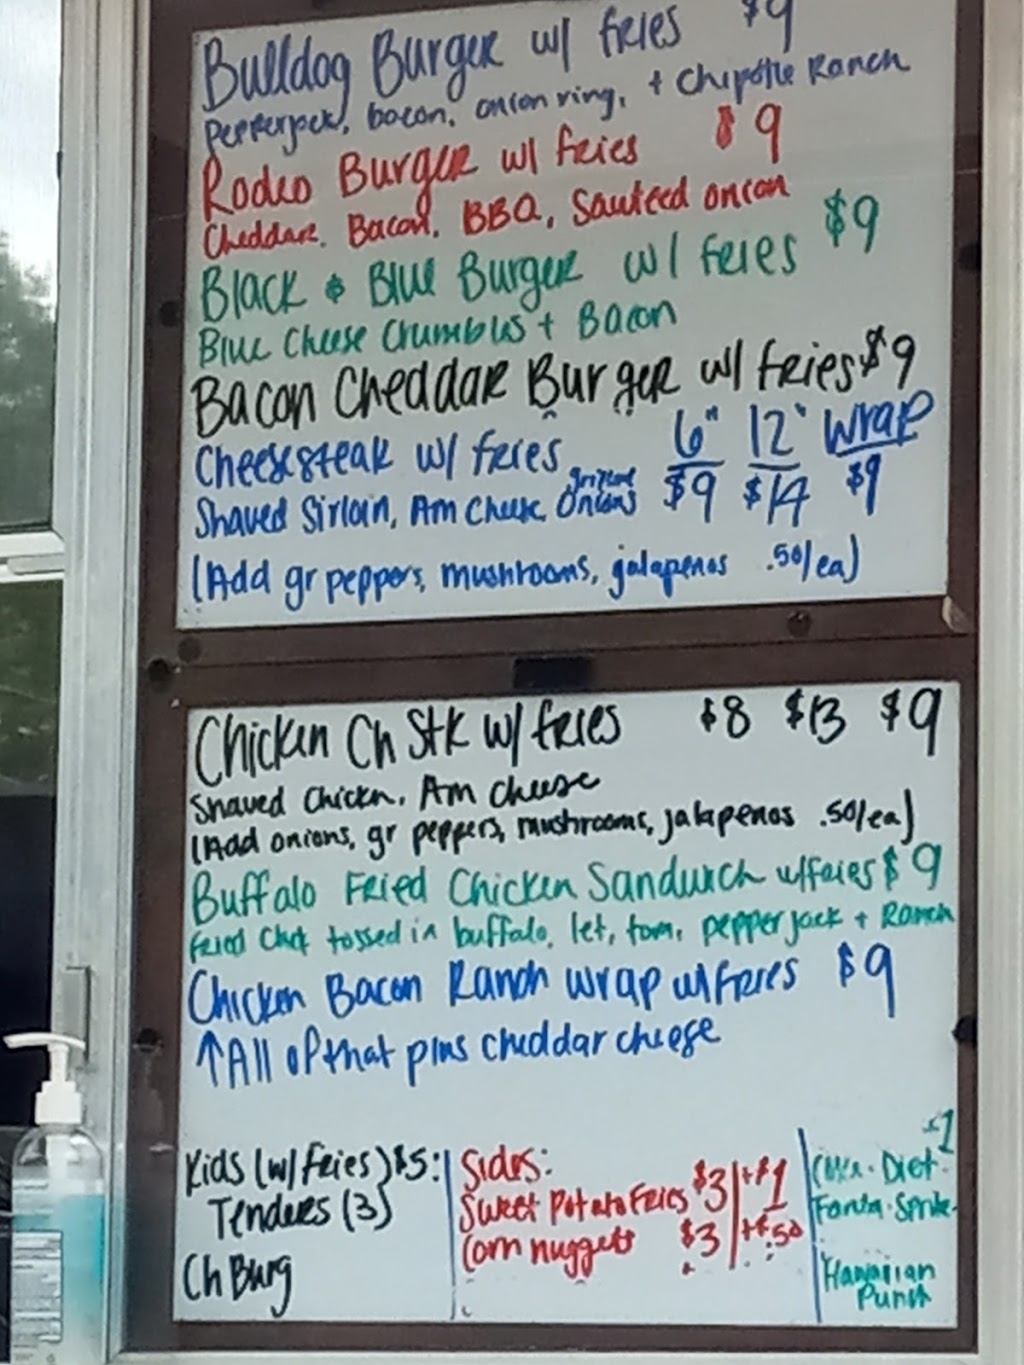 Bulldog Burger w/ fries $9
Pepperjack, bacon, onion ring, + Chipotle Ranch
Rodeo Burger w/ fries $9
Cheddar, Bacon, BBQ, Sauteed onion
Black & Blue Burger w/ fries $9
Blue Cheese Crumbles + Bacon
Bacon Cheddar Burger w/ fries $9
Cheesesteak w/ fries 6" 12" Wrap
Shaved Sirloin, Am Cheese, Onions $9 $14 $9
(Add gr peppers, mushrooms, jalapenos .50/ea)
Chicken Ch Stk w/ fries $8 $13 $9
Shaved Chicken, Am Cheese
(Add onions, gr peppers, mushrooms, jalapenos .50/ea)
Buffalo Fried Chicken Sandwich w/ fries $9
fried Chck tossed in buffalo, let, tom, pepper jack + Ranch
Chicken Bacon Ranch wrap w/ fries $9
↑ All of that plus cheddar cheese
Kids (w/ fries) $5:
Tenders (3)
Ch Burg
Sides:
Sweet Potato Fries $3 | +$1
Corn nuggets $3 | +$.50
$1
Coke · Diet ·
Fanta · Sprite
Hawaiian
Punch